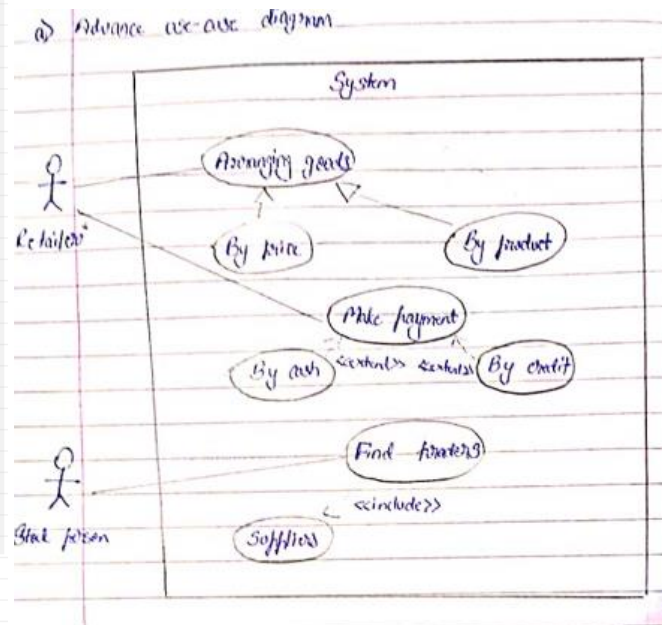 a) Advance use-case diagram
System
Arranging goods
Retailer
By price
By product
Make payment
By cash
<<extend>>
<<extend>>
By credit
Find
<<include>>
person
Suppliers